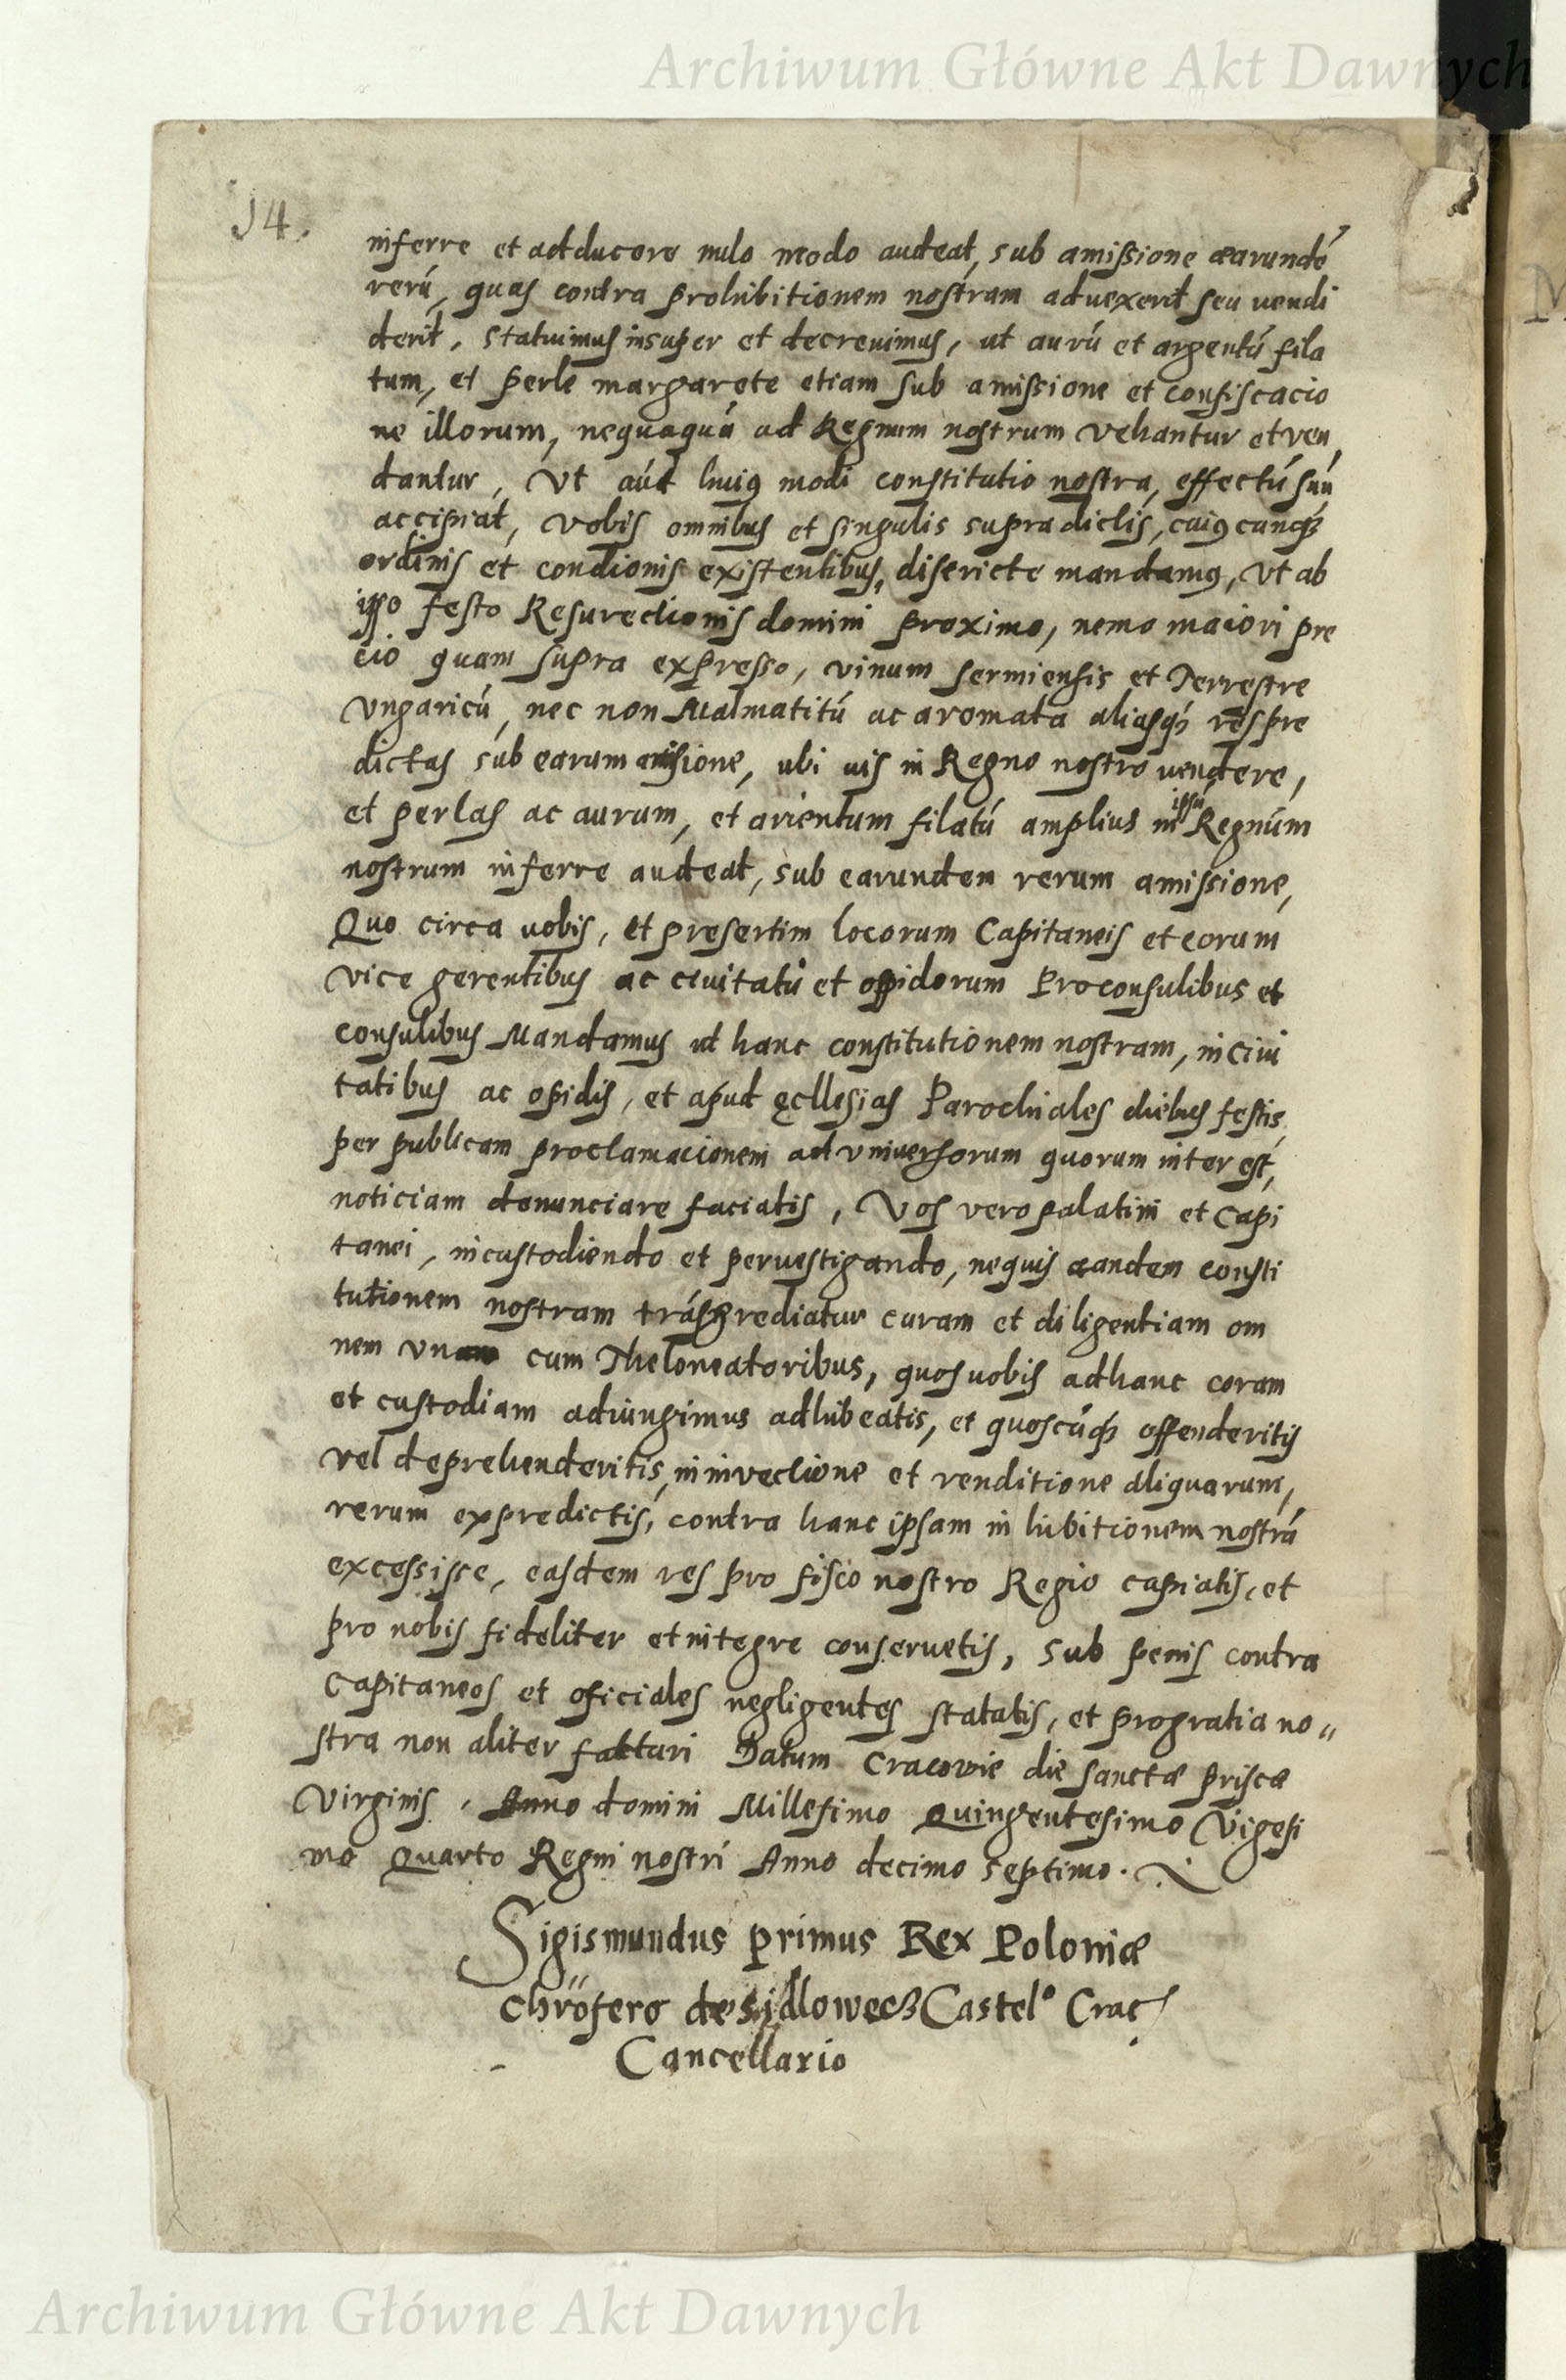 Archiwum Główne Akt Dawnych
14.
inferre et adducere nulo modo audeat, sub amissione æarundē
rerū, quas contra prohibitionem nostram aduexerit seu vendi
derit, Statuimus insuper et decreuimus, ut aurū et argentū fila
tum, et perle margarete etiam sub amissione et confiscacio
ne illorum, nequaquā ad Regnum nostrum vehantur et ven,
dantur, Ut aūt huiꝰ modi constitutio nostra, effectū suū
accipiat, Vobis omnibus et singulis supradictis, cuiꝰcunqꝫ
ordinis et condionis existentibus, districte mandamꝰ, Ut ab
ipso festo Resurectionis domini proximo, nemo maiori pre
cio quam supra expresso, vinum sermiensis et Terrestre
Ungaricū, nec non Malmatitū ac aromata aliasqꝫ res pre
dictas sub earum amisione, ubi uis in Regno nostro vendere,
et perlas ac aurum, et arientum filatū amplius in ipsū Regnum
nostrum inferre audeat, sub earunden rerum amissione,
Quo circa vobis, et presertim locorum Capitaneis et eorum
vice gerentibus ac ciuitatū et opidorum Proconsulibus et
consulibus Mandamus ut hanc constitutionem nostram, in ciui
tatibus ac opidis, et apud ęcllesias Parochiales diebus festis,
per publicam proclamacionem ad vniuersorum quorum inter est,
noticiam denunciare faciatis, Vos vero palatini et Capi
tanei, in custodiendo et peruestigando, nequis eandem consti
tutionem nostram trāsgrediatur curam et diligentiam om
nem una cum Theloneatoribus, quos vobis ad hanc coram
et custodiam adiungimus adhibeatis, et quoscūqꝫ offenderitis
vel deprehenderitis, in inuectione et venditione aliquarum,
rerum ex predictis, contra hanc ipsam in hibitionem nostrā
excessisse, easdem res pro fisco nostro Regio capiatis, et
pro nobis fideliter et integre conseruetis, sub penis contra
Capitaneos et oficiales negligentes statatis, et pro gratia no„
stra non aliter fatturi Datum Cracovie die sanctæ priscæ
Virginis, Anno domini Millesimo Quingentesimo Vigesi
mo Quarto Regni nostri Anno decimo septimo.
Sigismundus primus Rex Poloniæ
Chrōfero de Sidlowecz Castelº Crac
Cancellario
Archiwum Główne Akt Dawnych